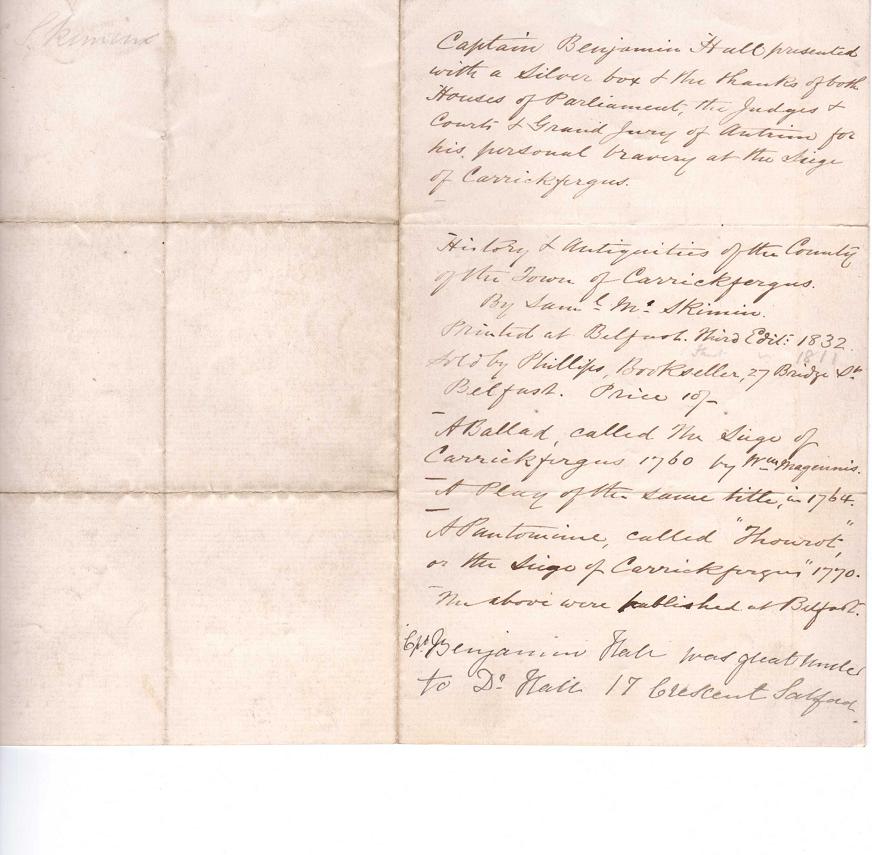 Skimin
Captain Benjamin Hall presented
with a Silver box & the thanks of both
Houses of Parliament, the Judges &
Courts & Grand Jury of Antrim for
his personal bravery at the Siege
of Carrickfergus.
History & Antiquities of the County
of the Town of Carrickfergus.
By Saml. Mc. Skimin.
Printed at Belfast. Third Edit: 1832.
1811
Sold by Phillips, Bookseller, 27 Bridge St.
Belfast. Price 10/-
A Ballad, called The Siege of
Carrickfergus 1760 by Wm Maginnis.
A Play of the same title, in 1764.
A Pantomime, called "Thourot",
or the Siege of Carrickfergus" 1770.
The above were published at Belfast.
Cpt. Benjamin Hall was great Uncle
to Dr. Hall 17 Crescent Salford.